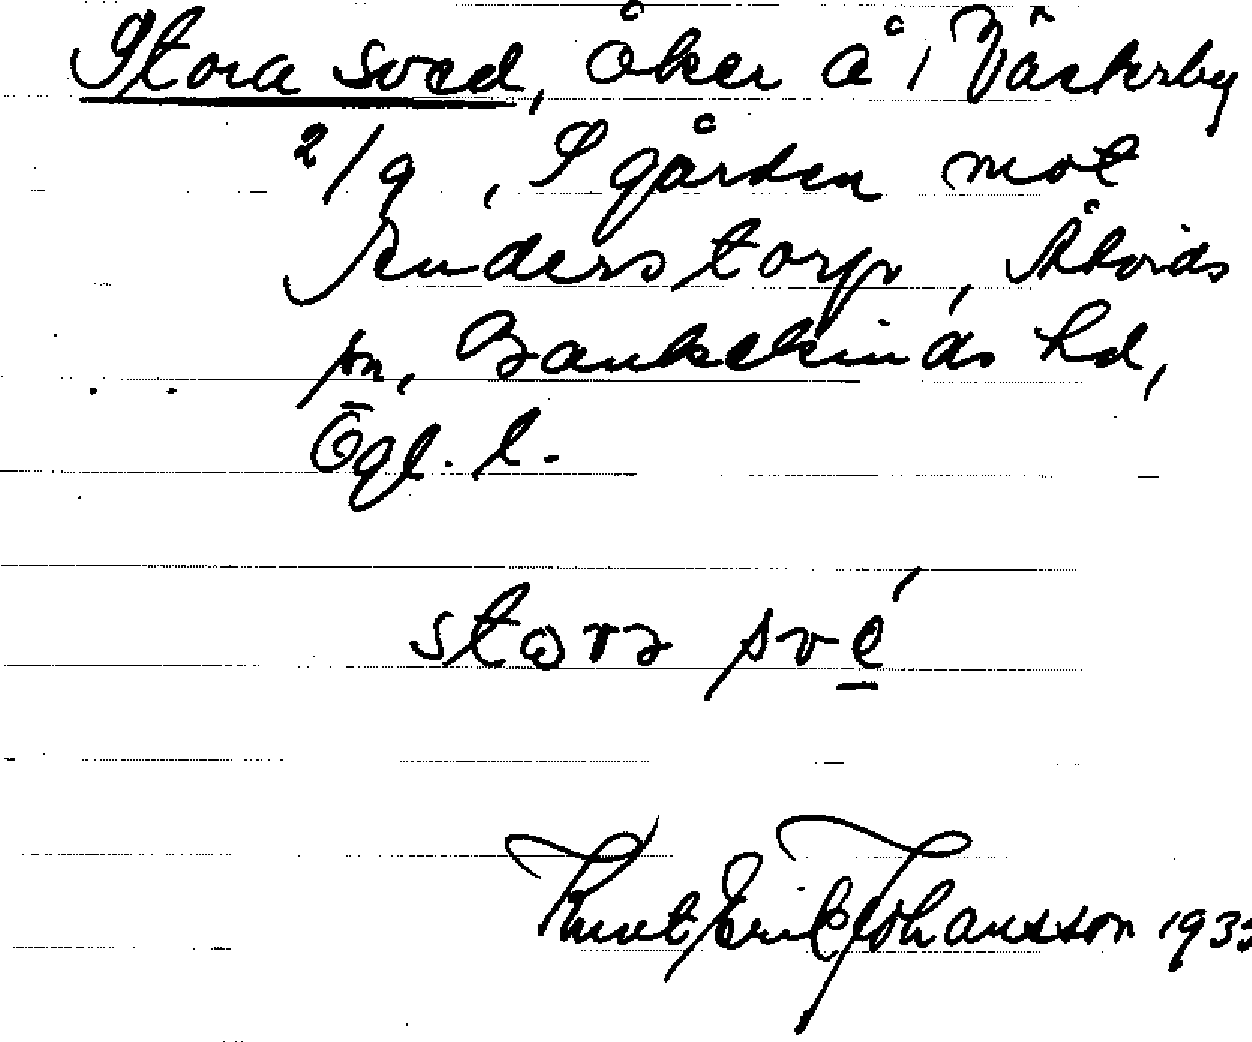 Stora sved, åker å 1 Västerby
2/9, S gården mot
Anderstorp, Åtvids
sn, Bankekinds hd,
Ögl. l.
stora své
Knut Erik Johansson 1933